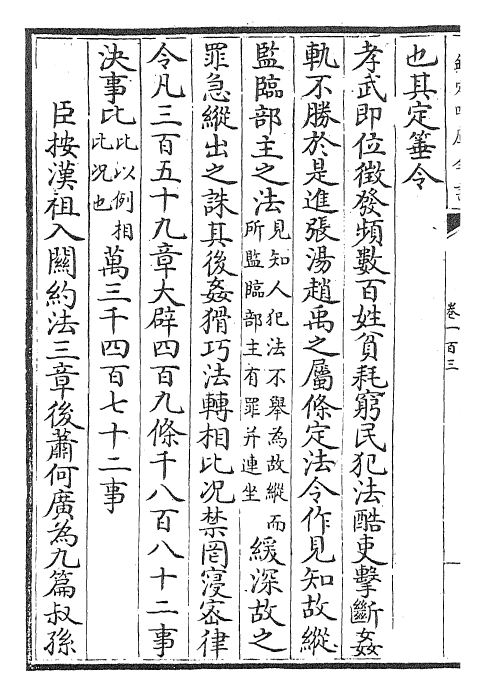 欽定四庫全書
卷一百三
也其定箠令
孝武即位徵發頻數百姓貧耗窮民犯法酷吏擊斷姦
軌不勝於是進張湯趙禹之屬條定法令作見知故縱
監臨部主之法見知人犯法不舉為故縱而所監臨部主有罪并連坐緩深故之
罪急縱出之誅其後姦猾巧法轉相比况禁罔寖宻律
令凡三百五十九章大辟四百九條千八百八十二事
決事比比以例相比况也萬三千四百七十二事
臣按漢祖入闗約法三章後蕭何廣為九篇叔孫